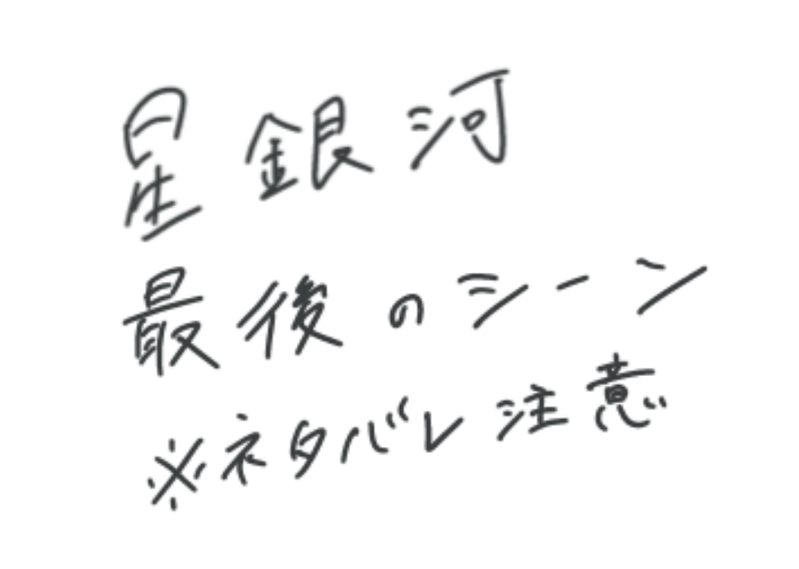 星銀河
最後のシーン
※ネタバレ注意